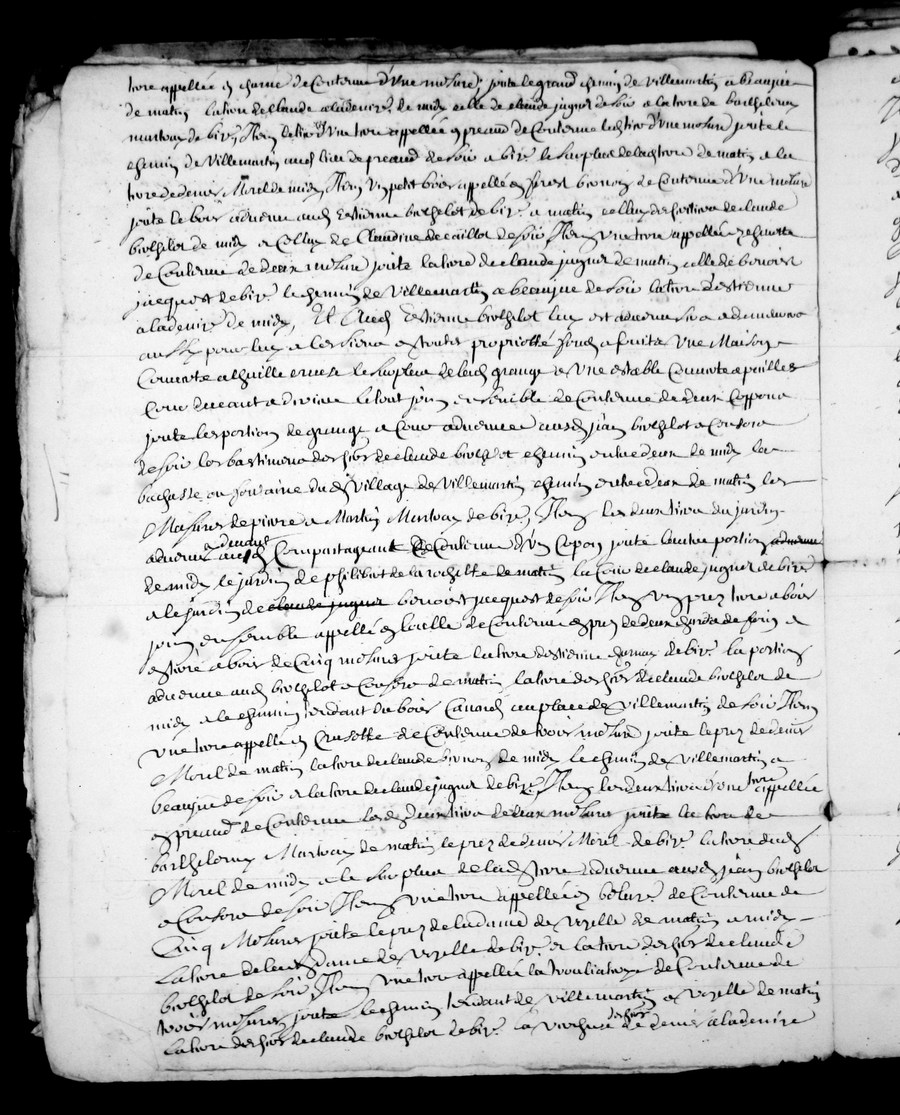 terre appellée en charne de Contenue d'Une mesure joute le grand chemin de Villemartin a beaujeu
de matin la terre de Claude aladenise de midy celle de Claude juguet de soir a la terre de barthelemy
martoux de bize, Item le tiers d'Une terre appellée en preaud de Contenue led tiers d'Une mesure joute le
chemin de Villemartin aud lieu de preaud de soir a bize le surplus de lad terre de matin a la
terre de denis Morel de midy, Item Un petit bois appellé en forest de Contenue d'Une mesure
joute le bois advenu aud Estienne berthelot de bize a matin celluy des heritiers de Claude
berthelot de midy a Celluy de Claudine de caillot de soir Item Une terre appellée
de Contenue de deux mesures joute la terre de Claude juguet de matin celle de benoist
jacquet de bize le chemin de Villemartin a beaujeu de soir la terre d'Estienne
aladenise de midy, Et Aud Estienne berthelot luy est advenu sera a demeurera
aussy pour luy a les siens en toutes proprietté fonds a fruits Une Maison
Couverte a thuille avec le surplus de lad grange a Une estable Couverte a pailles
Cour devant a divise le tout joint ensemble de Contenue de deux Coppons
joute les portion de grange a Cour advenue ausd jean berthelot a Consors
de soir les bastiments des hoirs de Claude berthelot chemin entre deux de midy la
bachasse ou fontaine dud Village de Villemartin chemin entre deux de matin les
Masures de pierre a Martin Martoux de bize, Item les deux tiers du jardin
advenue aud Compartageant de Contenue d'Un Copon joute lautre portion advenue
de midy le jardin de philibert de la rochette de matin la Cour de Claude juguet de bize
a le jardin de Claude juguet benoist jacquet de soir Item Un prez terre a bois
joint ensemble appellé en de Contenue en prez de deux Chards de foin a
en terre a bois de Cinq mesures joute la terre d'Estienne de bize la portion
advenue aud berthelot a Consors de matin la terre des hoirs de Claude berthelot de
midy a le chemin tendant du bois Canard en place de Villemartin de soir Item
Une terre appellée en Crusette de Contenue de trois mesures joute le prez de denis
Morel de matin la terre de Claude de midy le chemin de Villemartin a
beaujeu de soir a la terre de Claude juguet de bize Item les deux tiers d'Une terre appellée
en preaud de Contenue lesd deux tiers de deux mesures joute la terre de
barthelemy Martoux de matin le prez de denis Morel de bize la terre dud
Morel de midy a le surplus de lad terre advenue ausd jean berthelot
a Consors de soir Item Une terre appellée en de Contenue de
Cinq Mesures joute le prez de la dame de Vizelle de matin a midy
la terre de lad dame de Vizelle de bize et la terre des hoirs de Claude
berthelot de soir Item Une terre appellée la de Contenue de
trois mesures joute le chemin tendant de Villemartin a Vizelle de matin
la terre des hoirs de Claude berthelot de bize la des hoirs de denis aladenise